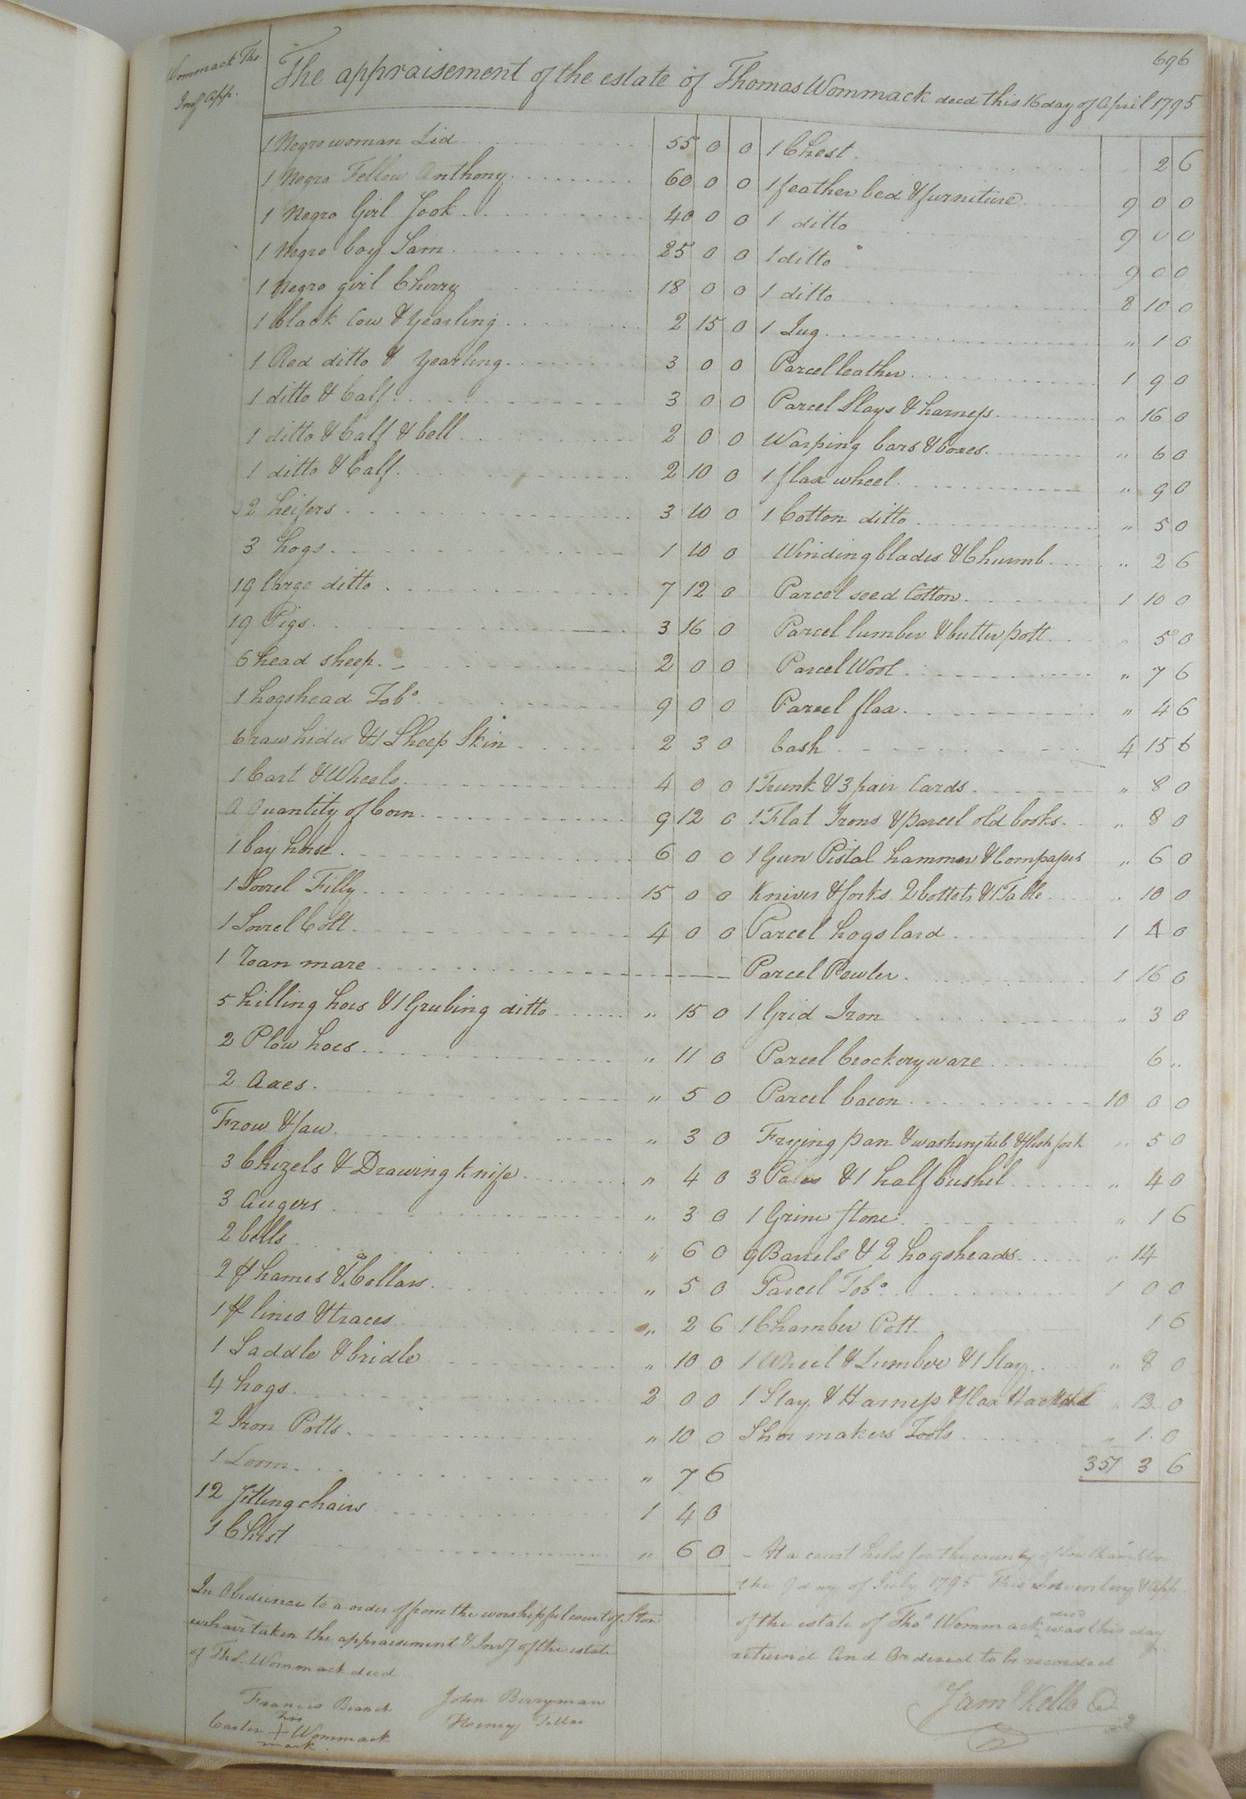 696
Wommack Tho
Invy App.
The appraisement of the estate of Thomas Wommack decd this 16 day of April 1795
1 Negro woman Lid 55 0 0
1 Negro Fellow Anthony 60 0 0
1 Negro Girl Jook 40 0 0
1 Negro boy Sam 25 0 0
1 Negro girl Cherry 18 0 0
1 black Cow & yearling 2 15 0
1 Red ditto & yearling 3 0 0
1 ditto & Calf 3 0 0
1 ditto & Calf & bell 2 0 0
1 ditto & Calf 2 10 0
2 heifers 3 10 0
3 hogs 1 10 0
19 large ditto 7 12 0
19 Pigs 3 16 0
6 head sheep 2 0 0
1 hogshead Tobo 9 0 0
6 raw hides & 1 Sheep Skin 2 3 0
1 Cart & Wheels 4 0 0
A Quantity of Corn 9 12 0
1 bay horse 6 0 0
1 Sorrel Filly 15 0 0
1 Sorrel Colt 4 0 0
1 roan mare
5 hilling hoes & 1 Grubing ditto " 15 0
2 Plow hoes " 11 0
2 Axes " 5 0
Frow & saw " 3 0
3 Chizels & Drawing knife " 4 0
3 Augers " 3 0
2 bells " 6 0
2 pr hames & a Collars " 5 0
1 pr lines & traces " 2 6
1 Saddle & bridle " 10 0
4 hogs 2 0 0
2 Iron Potts " 10 0
1 Loom " 7 6
12 Sitting chairs 1 4 0
1 Chest " 6 0
1 Chest 2 6
1 feather bed & furniture 9 0 0
1 ditto 9 0 0
1 ditto 9 0 0
1 ditto 8 10 0
1 Jug " 1 0
Parcel leather 1 9 0
Parcel Slays & harness " 16 0
Warping bars & boxes " 6 0
1 flax wheel " 9 0
1 Cotton ditto " 5 0
Winding blades & Churnb " 2 6
Parcel seed Cotton 1 10 0
Parcel lumber & butter pott 5 0
Parcel Wool " 7 6
Parcel flax " 4 6
Cash 4 15 6
1 Trunk & 3 pair Cards " 8 0
1 Flat Irons & parcel old books " 8 0
1 Gun Pistal hammer & Compases " 6 0
Knives & forks 2 bottets & 1 Table " 10 0
Parcel hogs lard 1 4 0
Parcel Pewter 1 16 0
1 Grid Iron " 3 0
Parcel Crockery ware 6 "
Parcel bacon 10 0 0
Frying pan & washing tub & flesh fork " 5 0
3 Pales & 1 half bushel " 4 0
1 Grine stone " 1 6
9 Barrels & 2 hogsheads " 14
Parcel Tobo 1 0 0
1 Chamber Pott 1 6
1 Wheel & Lumber & 1 Slay " 8 0
1 Slay & Harness & flax " 12 0
Shoe makers Tools " 1 0
351 3 6
In Obedience to a order of from the worshippl court of Ston
we have taken the appraisement & Invy of the estate
of Thos Wommack decd
Francis Branch
John Berryman
Carter his + mark Wommack
Henry
- At a court held for the county of Southampton
the 9 day of July 1795 This Inventory & App
of the estate of Thos Wommack decd was this day
returned And Ordered to be recorded
Saml Kello C